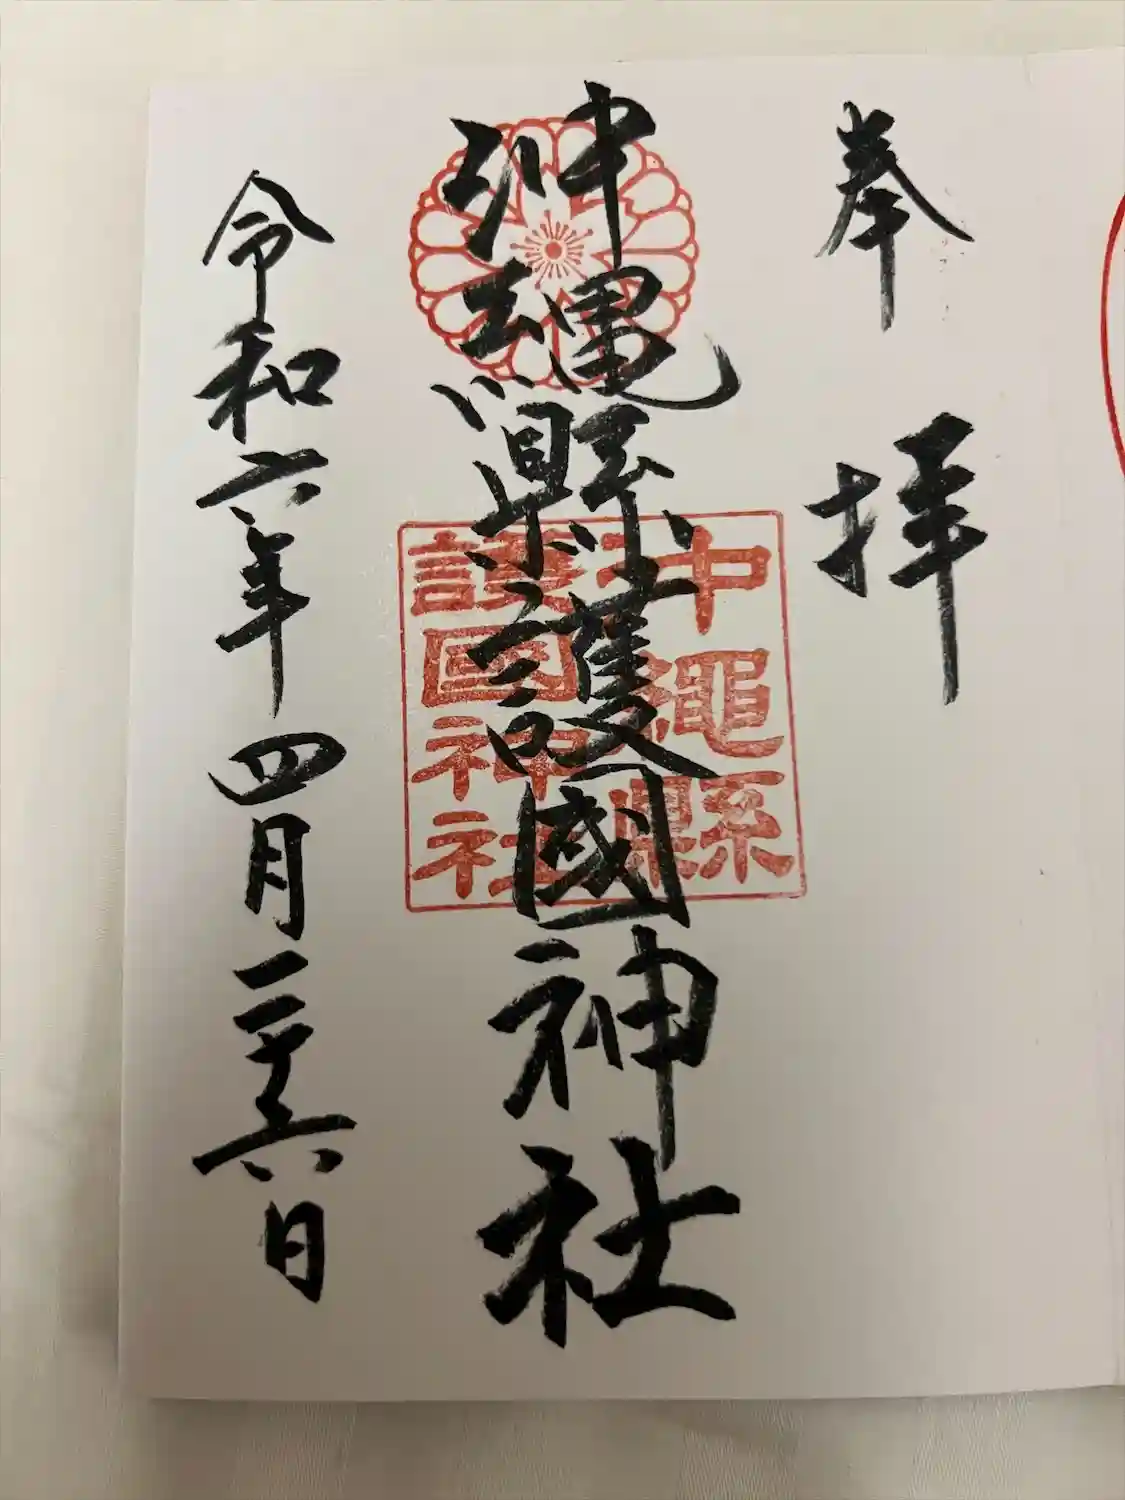 奉拝
沖縄縣護國神社
沖縄縣
護國神社
令和六年四月二十六日